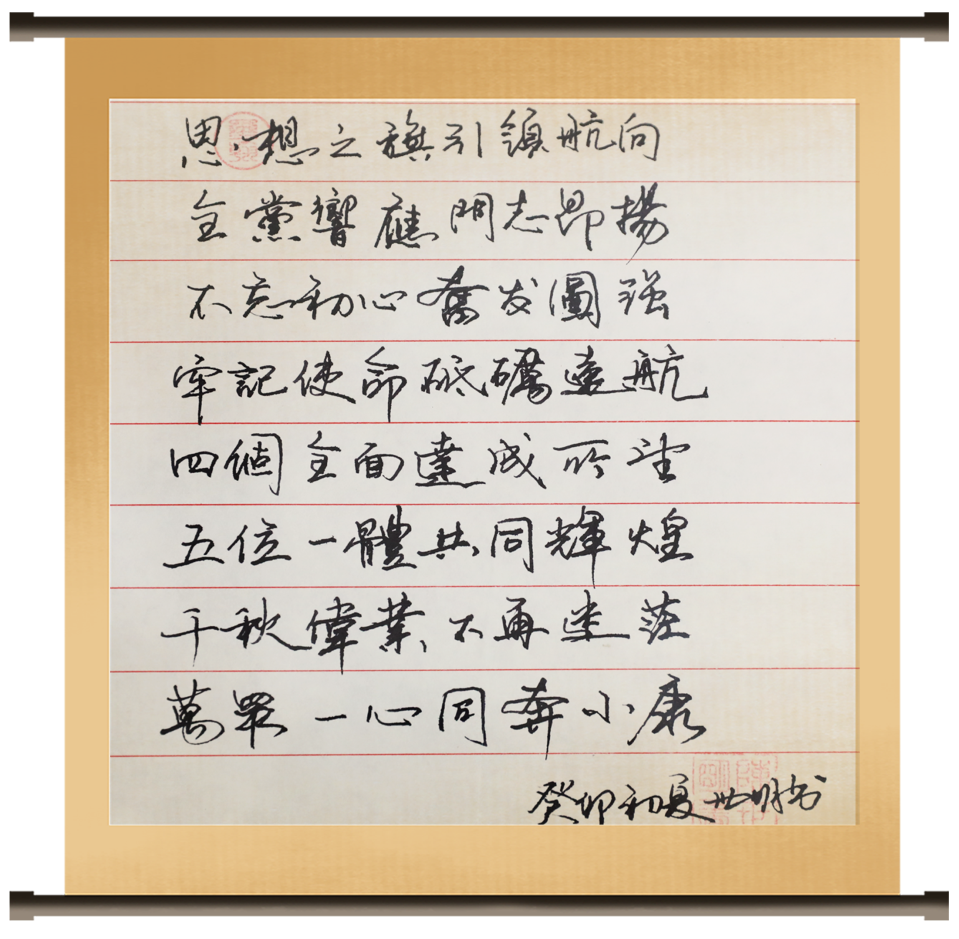 思想之旗引领航向
全黨響應鬥志昂揚
不忘初心奮发圖强
牢記使命砥礪遠航
四個全面達成所望
五位一體共同輝煌
千秋偉業不再迷茫
萬眾一心同奔小康
癸卯初夏世明书